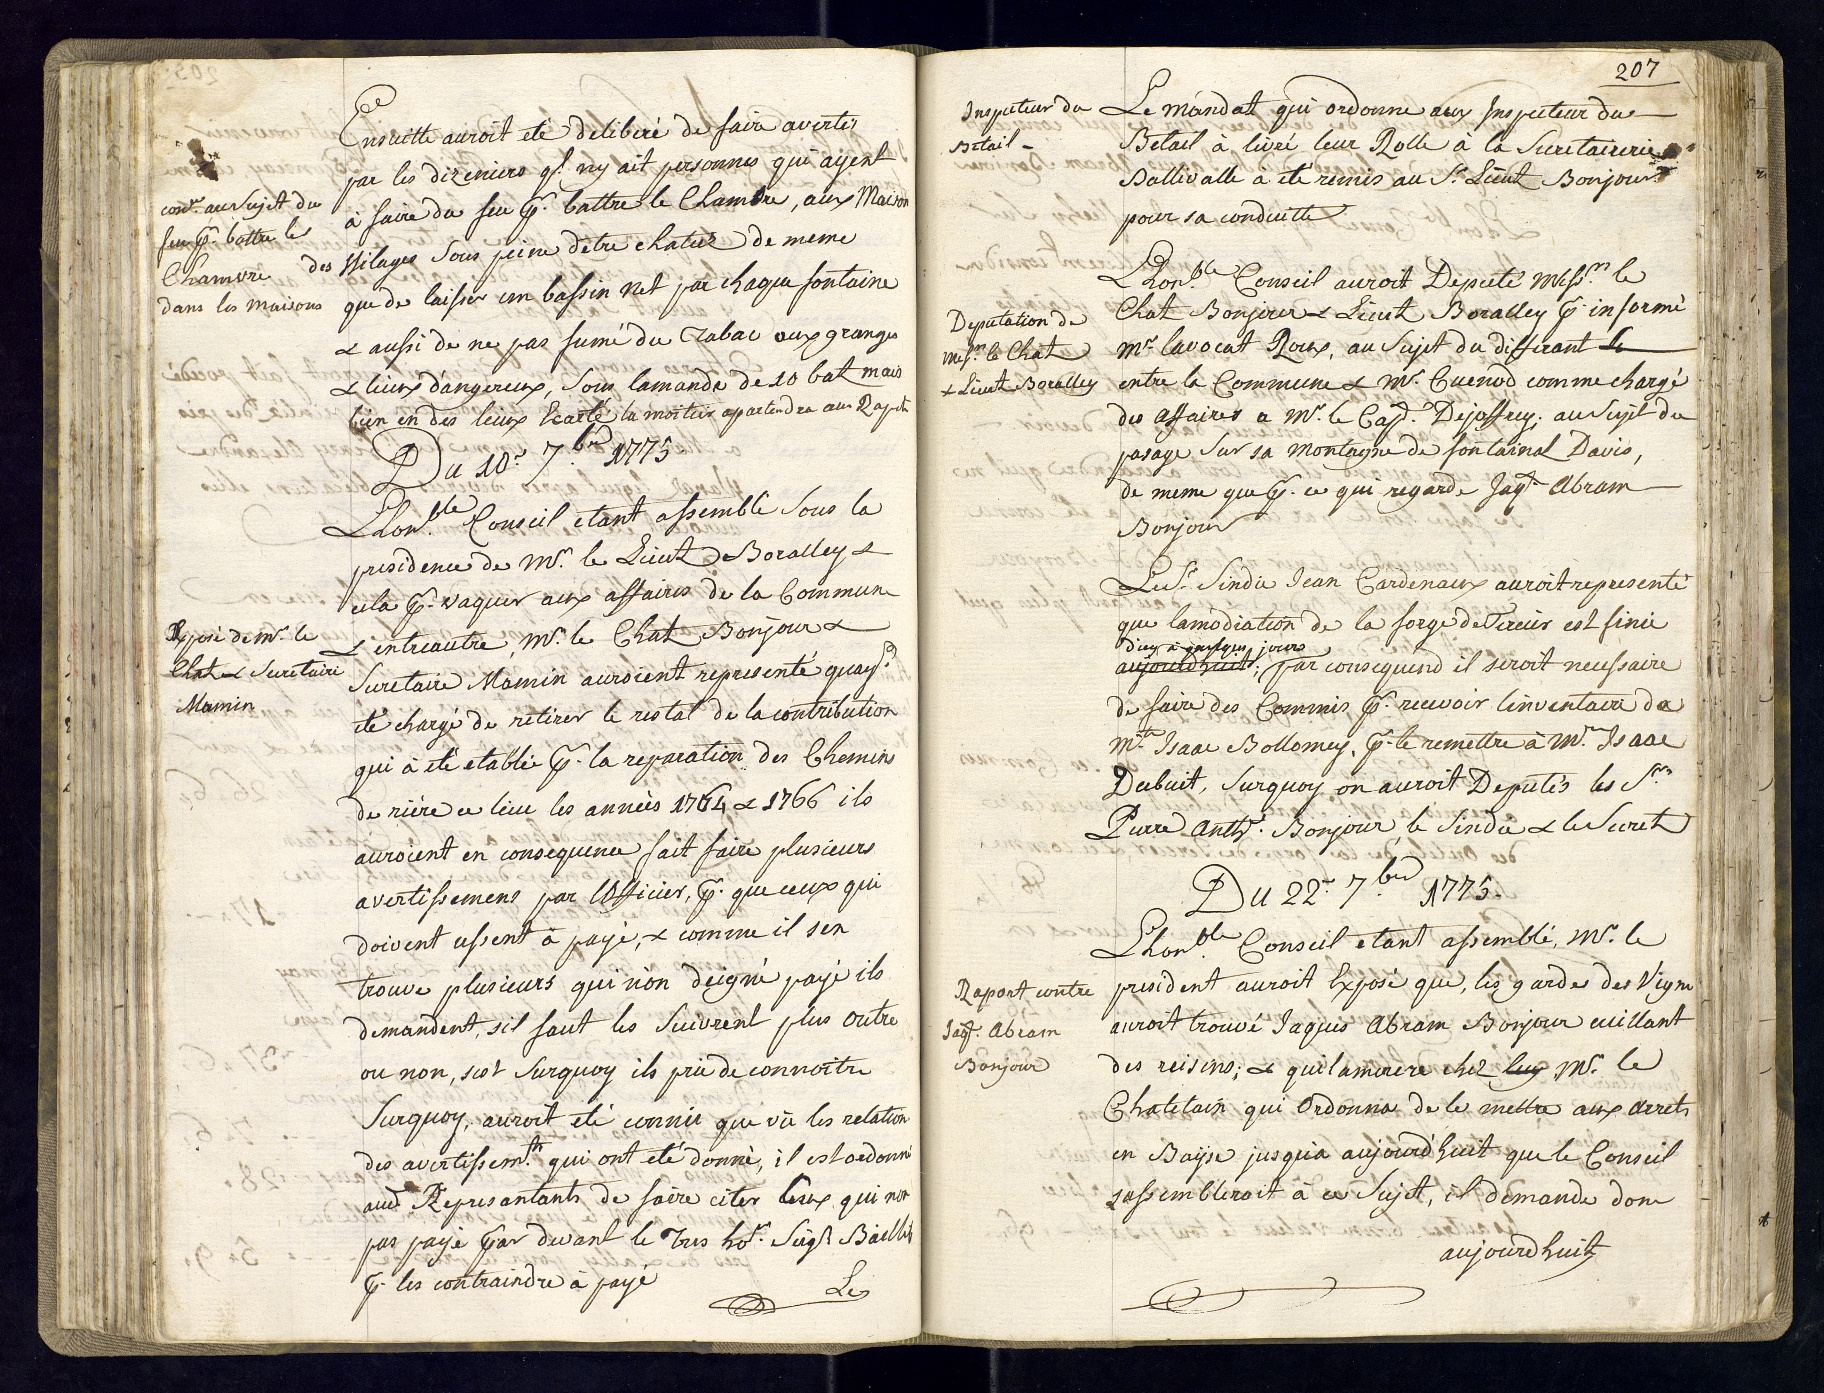 Ensuitte auroit eté deliberé de faire avertir
par les dizeniers q.l ny ait personnes qui ayent
con.r au Sujet du
feu p.r battre le
Chamvre
dans les maisons
à faire du feu p.r battre le Chambre, aux Maison
des Vilages Sous peine detre chatiéz de meme
que de laisser un bassin Net par chaque fontaine
& aussi de ne pas fumé du Tabac aux granges
& lieux dangereux, Sous lamande de 10 bat mais
bien en des lieux Ecarté la moitier apartendra aux Raport.
Du 10.e 7.bre 1775
Lhon.ble Conseil etant assemblé Sous la
presidence de M.r le Lieut Boralley &
cela p.r vaquer aux affaires de la Commune
Exposé de M.r le
Chat & Secretaire
Mamin
& entreautre, M.r le Chat Bonjour &
Secretaire Mamin auroient representé quayt
eté chargé de retirer le restat de la contribution
qui à eté etablie p.r la reparation des Chemins
de riére ce lieu les années 1764 & 1766 ils
auroient en consequence fait faire plusieurs
avertissemens par lOfficier, p.r que ceux qui
doivent ussent à payé, & comme il sen
trouve plusieurs qui nòn deigné payé ils
demandent, sil faut les Suivrent plus outre
ou non, Surquoy ils prie de connoitre
Surquoy, auroit eté connu que vû les relation
des avertissem.ts qui ont eté donné, il est ordonné
aud Represantants de faire citer Ceux qui non
pas payé par devant le Tres hoñ. Seig.r Baillif
p.r les contraindre à payé
Le
207
Inspecteur du
Bétail
Le mandat qui ordonne aux Inspecteur du
Bétail à livré leur Rolle à la Secretairerie
Ballivalle à eté remis au S.r Lieut Bonjour
pour sa conduitte
Deputation de
Mess.rs le Chat
& Lieut Boralley
Lhon.ble Conseil auroit Deputé Mess.rs le
Chat Bonjour & Lieut Boralley p.r informé
M.r lavocat Roux, au Sujet du differant
entre la Commune & M.r Cuenod comme chargé
des affaires a M.r le Cap.t Dejoffrey; au Sujet du
pasage Sur sa montagne de fontainal Davis,
de meme que p.r ce qui regarde Jaq.s Abram
Bonjour
Le S.r Sindic Jean Cardenaux auroit representé
que lamodiation de la forge de Tercier est finie
dicy à quelques jours
aujourdhuit; par consequend il seroit necessaire
de faire des Commis p.r recevoir linventaire da
M.tre Isaac Bollomey, p.r le remettre à M.tre Isaac
Dubuit, Surquoy on auroit Deputés les S.rs
Pierre Anth.e Bonjour le Sindic & le Secret
Du 22.e 7.bre 1775.
Lhon.ble Conseil etant assemblé, M.r le
Raport contre
Jaq.s Abram
Bonjour
president auroit Exposé que, les gardes des Vigne
auroit trouvé Jaques Abram Bonjour cuillant
des reisins; & quil lamenere chez luy M.r le
Chatelain qui Ordonna de le mettre aux arrets
en Bayse jusquà aujourdhuit que le Conseil
sassembleroit à ce Sujet, il demande donc
aujourdhuit